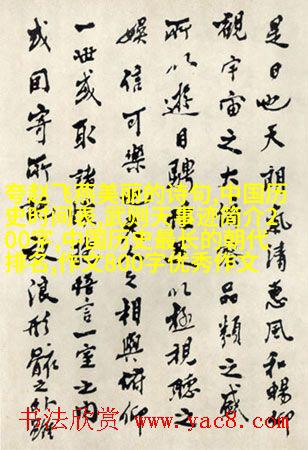 是日也天朗氣清惠風和暢仰
觀宇宙之大品類之盛
所以遊目騁以極視聽之
娛信可樂之相與俯仰
一世或取諸悟言一室之内
或因寄所浪形骸之外雖
夸赵飞燕美丽的诗句,中国历
史时间表,武则天事迹简介2
00字,中国历史最长的朝代
排名,作文800字优秀作文
书法欣赏 www.yac8.com